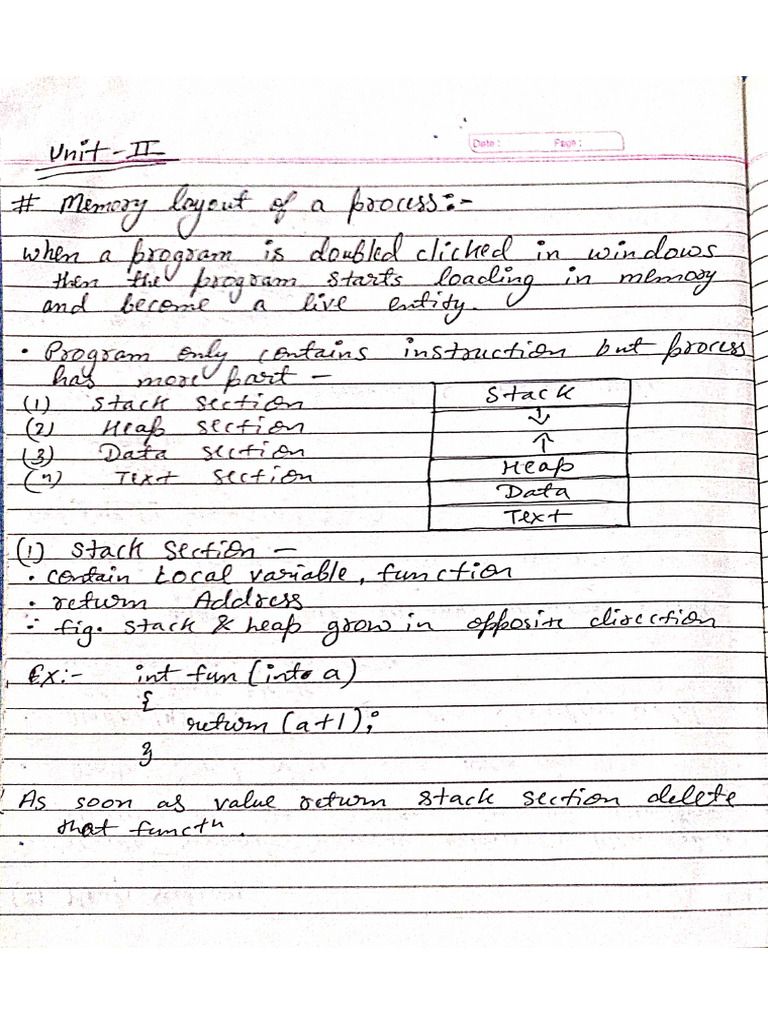 Unit-II
Date : Page :
# Memory layout of a process:-
when a program is doubled clicked in windows
then the program starts loading in memory
and become a live entity.
• Program only contains instruction but process
has more part -
(1) Stack section
(2) Heap section
(3) Data section
(4) Text section
Stack
↓
↑
Heap
Data
Text
(1) Stack section -
• contain Local variable, function
• return Address
∴ fig. stack & heap grow in opposite direction
Ex:- int fun (into a)
{
return (a+1);
}
As soon as value return stack section delete
that functn.